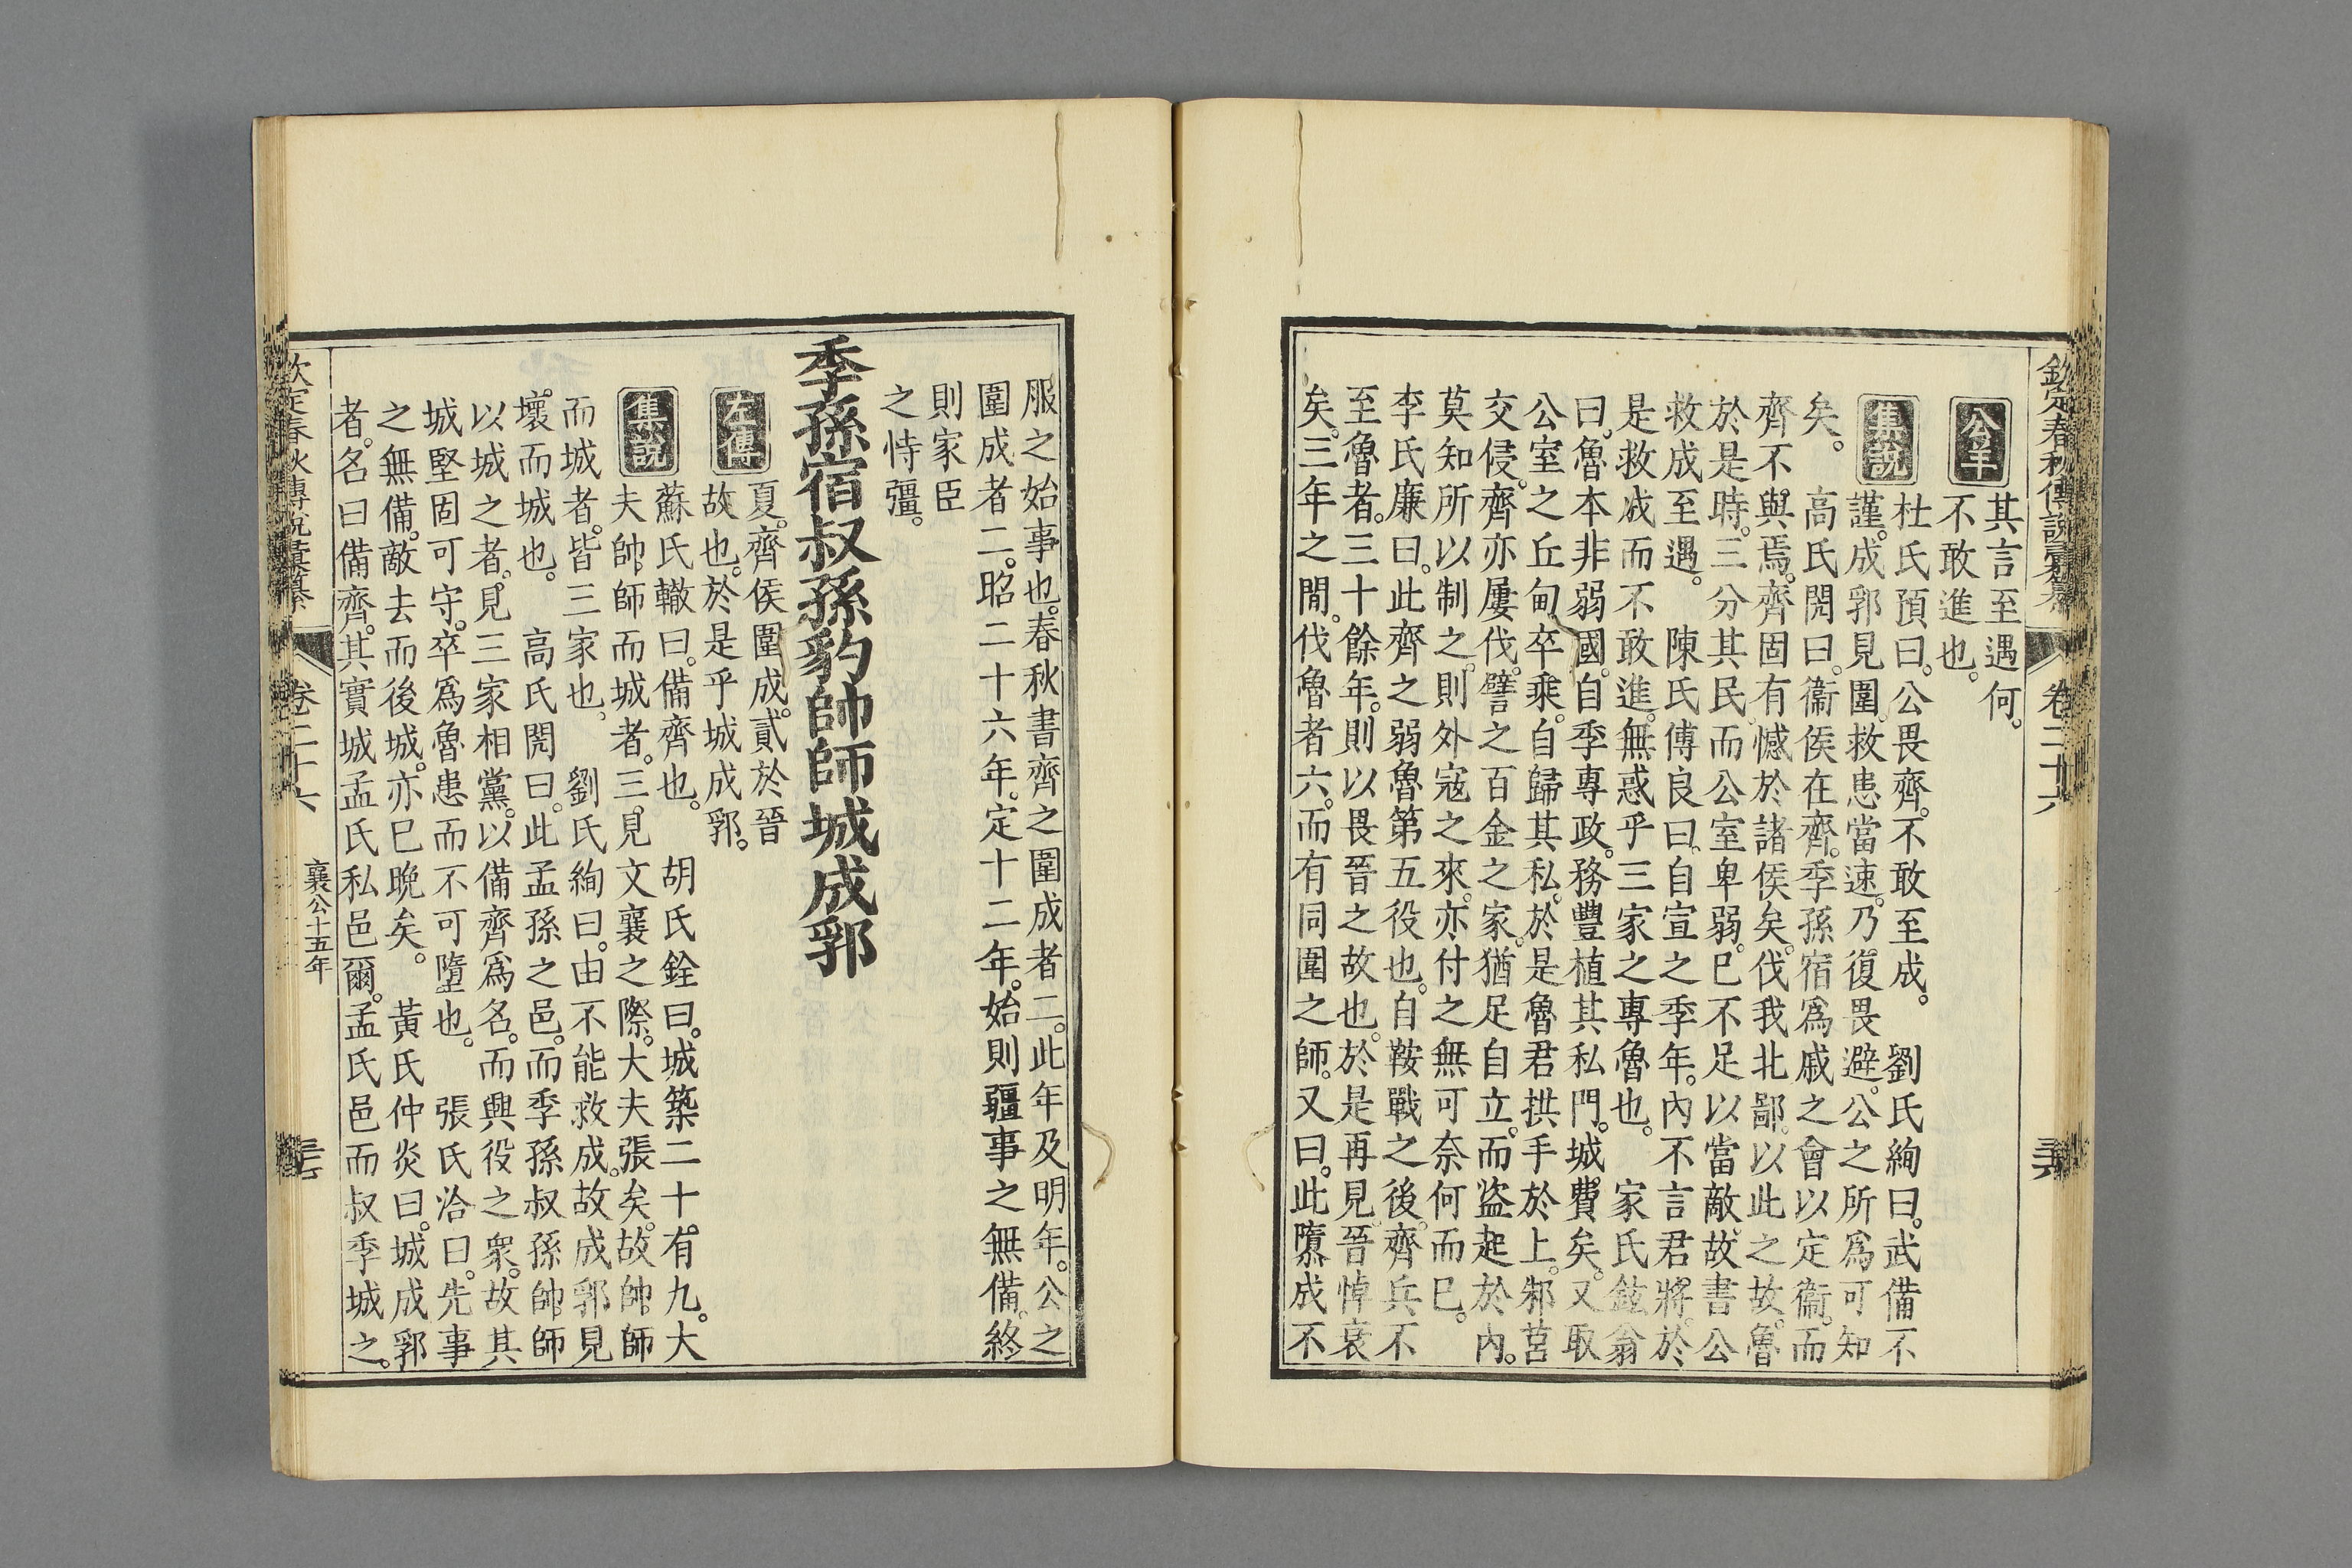 欽定春秋傳說彙纂
卷二十六
公羊
其言至遇何。
不敢進也。
集說
杜氏預曰。公畏齊。不敢至成。 劉氏絢曰。武備不
謹。成郛見圍。救患當速。乃復畏避。公之所爲可知
矣。 高氏閌曰。衞侯在齊。季孫宿爲戚之會以定衞。而
齊不與焉。齊固有憾於諸侯矣。伐我北鄙。以此之故。魯
於是時。三分其民。而公室卑弱。已不足以當敵。故書公
救成至遇。 陳氏傅良曰。自宣之季年。內不言君將。於
是救成而不敢進。無惑乎三家之專魯也。 家氏鉉翁
曰。魯本非弱國。自季專政。務豐植其私門。城費矣。又取
公室之丘甸卒乘。自歸其私。於是魯君拱手於上。邾莒
交侵。齊亦屢伐。譬之百金之家。猶足自立。而盜起於內。
莫知所以制之。則外寇之來。亦付之無可奈何而已。
李氏廉曰。此齊之弱魯第五役也。自鞍戰之後。齊兵不
至魯者。三十餘年。則以畏晉之故也。於是再見。晉悼衰
矣。三年之閒。伐魯者六。而有同圍之師。又曰。此隳成不
服之始事也。春秋書齊之圍成者二。此年及明年。公之
圍成者二。昭二十六年。定十二年。始則疆事之無備。終
則家臣
之恃彊。
季孫宿叔孫豹帥師城成郛
左傳
夏。齊侯圍成。貳於晉
故也。於是乎城成郛。
集說
蘇氏轍曰。備齊也。 胡氏銓曰。城築二十有九。大
夫帥師而城者。三見文襄之際。大夫張矣。故帥師
而城者。皆三家也。 劉氏絢曰。由不能救成。故成郛見
壞而城也。 高氏閌曰。此孟孫之邑。而季孫叔孫帥師
以城之者。見三家相黨。以備齊爲名。而興役之衆。故其
城堅固可守。卒爲魯患而不可墮也。 張氏洽曰。先事
之無備。敵去而後城。亦已晚矣。 黃氏仲炎曰。城成郛
者。名曰備齊。其實城孟氏私邑爾。孟氏邑而叔季城之。
欽定春秋傳說彙纂
卷二十六
襄公十五年